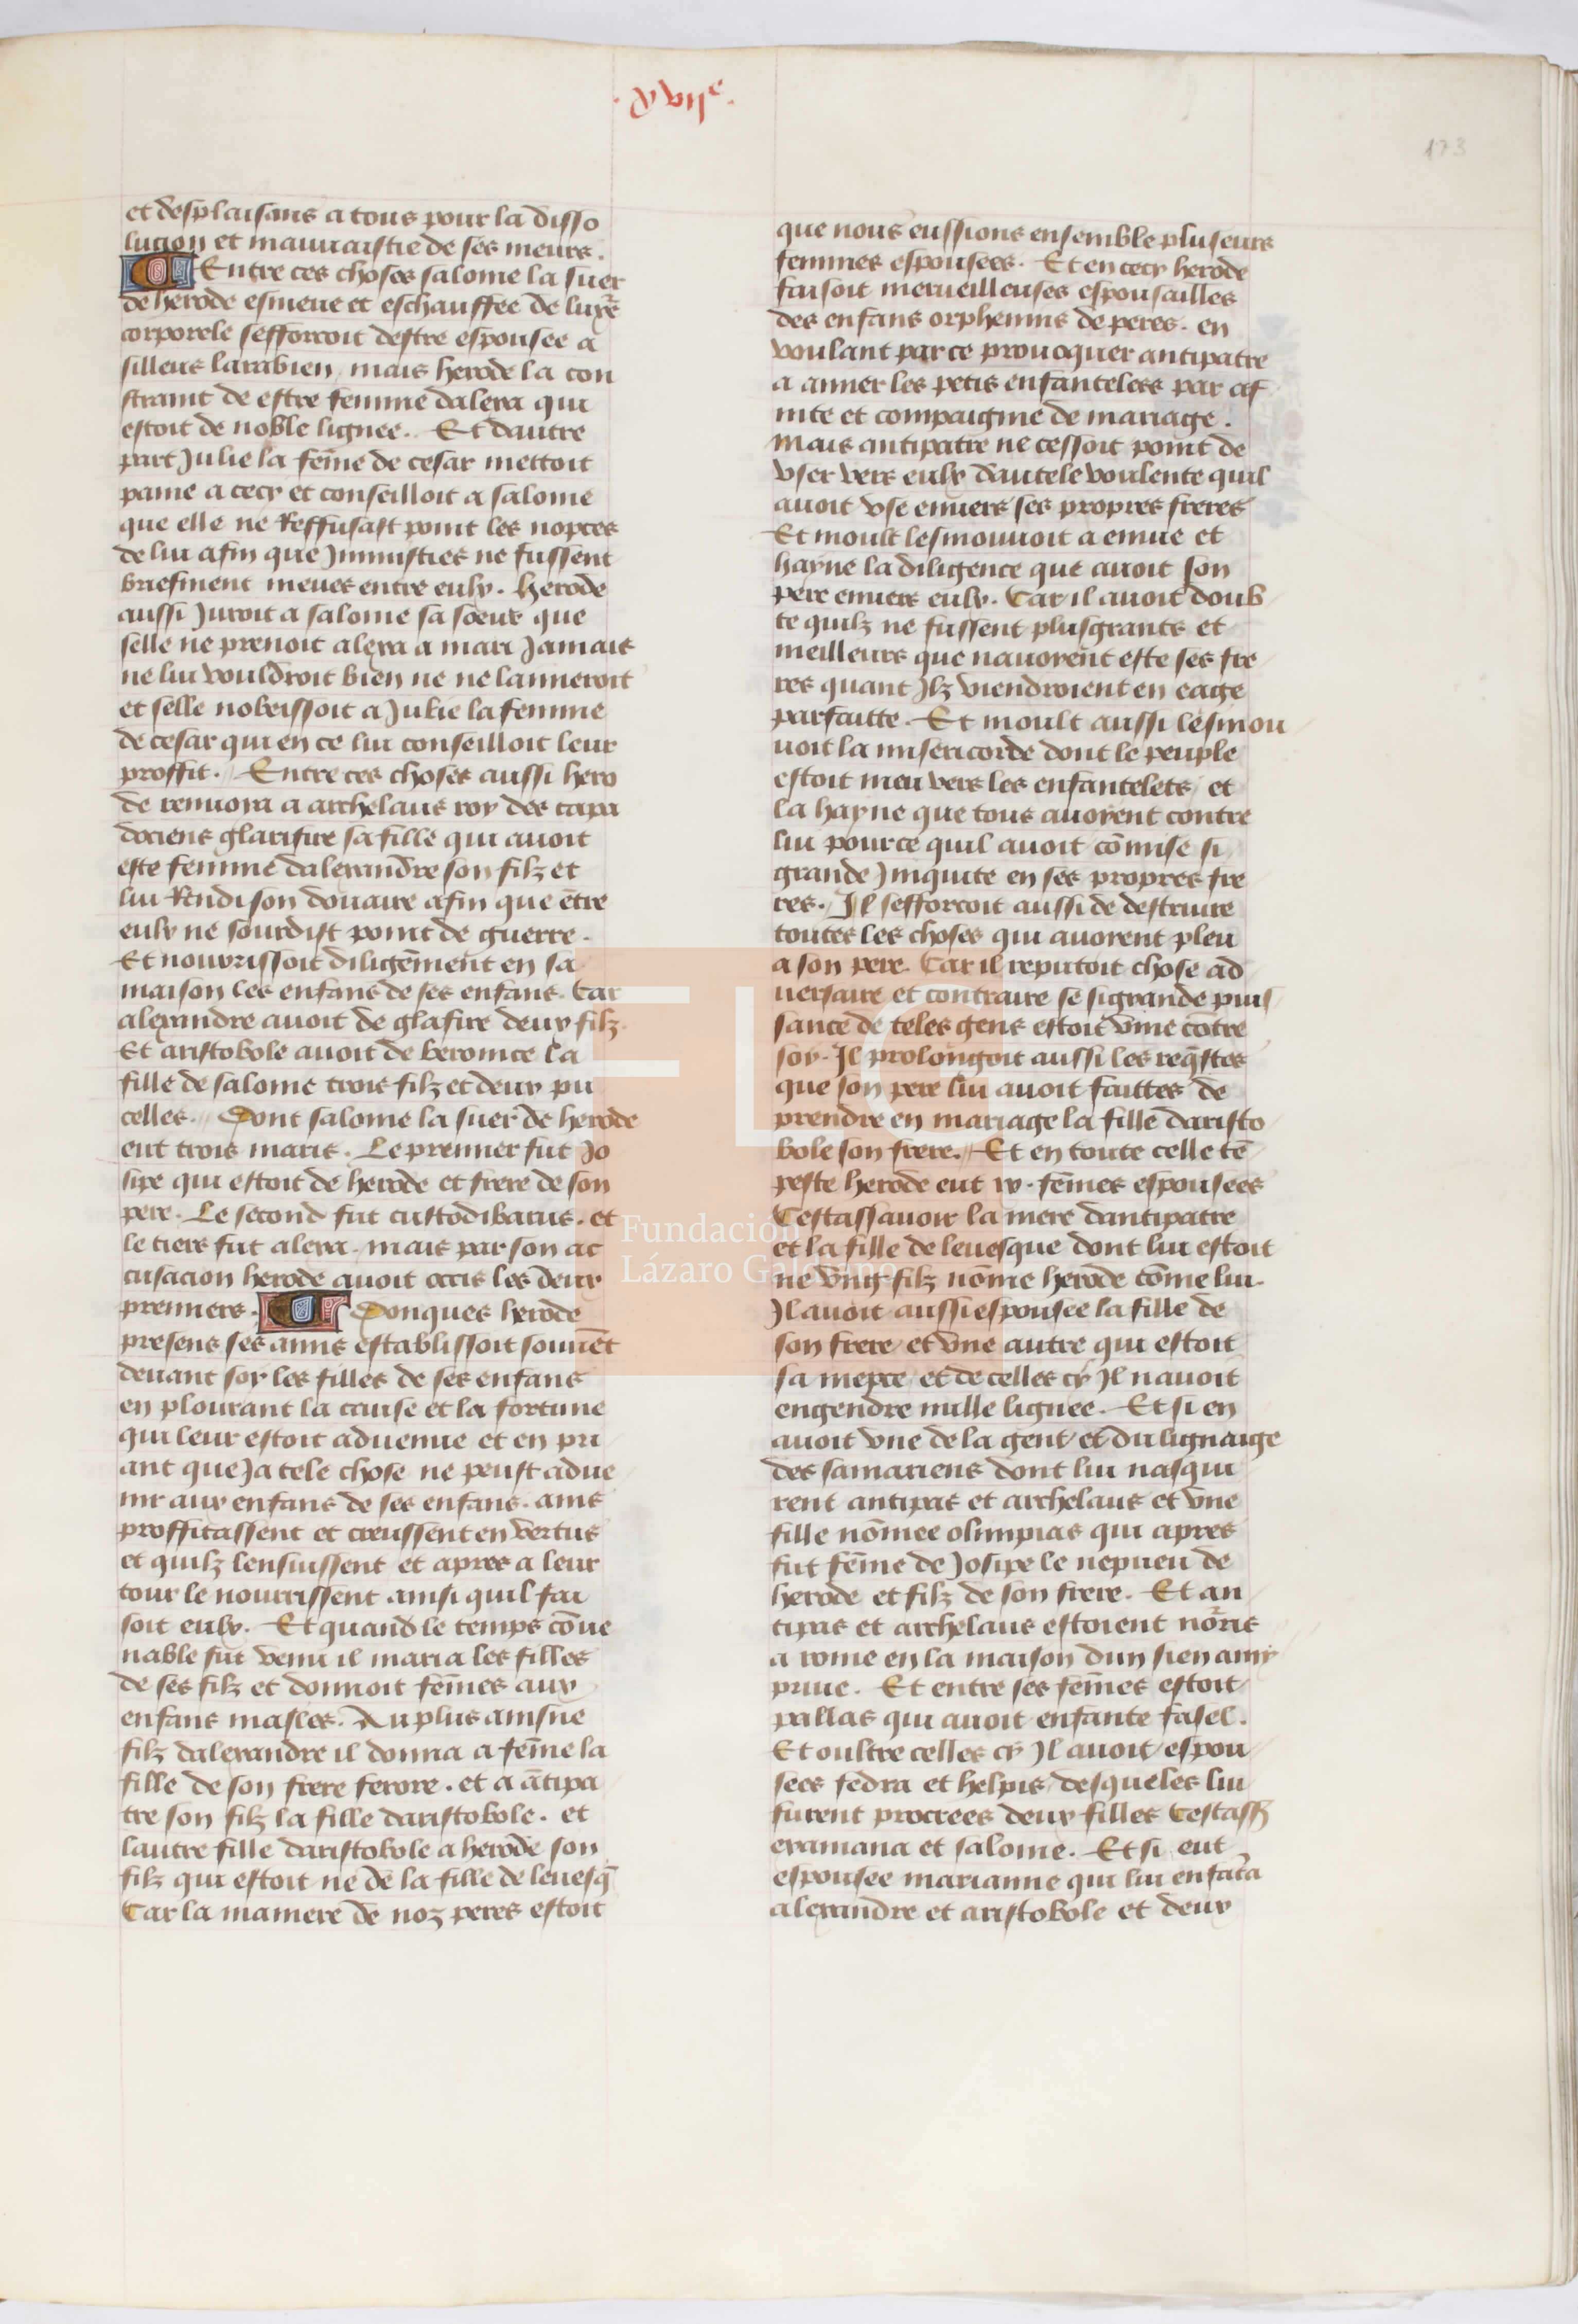 .xvii^e.
173
et desplaisans a tous pour la disso
lucion et mauuaistie de ses meurs.
Entre ces choses salome la suer
de herode esmeue et eschauffee de luxe
corporele sefforcoit destre espousee a
silleus larabien, mais herode la con
straint de estre femme dalexa qui
estoit de noble lignee. Et dautre
part Julie la fēme de cesar mettoit
paine a cecy et conseilloit a salome
que elle ne Reffusast point les nopces
de lui afin que Inimisties ne fussent
briefment meues entre eulx. herode
aussi Juroit a salome sa soeur que
selle ne prenoit alexa a mari Jamais
ne lui vouldroit bien ne ne lameroit
et selle nobeissoit a Julie la femme
de cesar qui en ce lui conseilloit leur
proffit. Entre ces choses aussi hero
de renuoia a archelaus roy des capa
dociens glarifire sa fille qui auoit
este femme dalexandre son filz et
lui Rendi son douaire afin que ētre
eulx ne sourdist point de guerre.
Et nourrissoit diligēment en sa
maison les enfans de ses enfans. Car
alexandre auoit de glafire deux filz.
Et aristobole auoit de beronice la
fille de salome trois filz et deux pu
celles. Dont salome la suer de herode
eut trois maris. Le premier fut Jo
sipe qui estoit de herode et frere de son
pere. Le second fut custodibarus. et
le tiers fut alexa. mais par son ac
cusacion herode auoit occis les deux
premiers. Donques herode
presens ses amis establissoit souuēt
deuant soy les filles de ses enfans
en plourant la cause et la fortune
qui leur estoit aduenue et en pri
ant que Ja tele chose ne peust adue
nir aux enfans de ses enfans. ains
proffitassent et creussent en vertus
et quilz lensuissent et apres a leur
tour le nourrissent ainsi quil fai
soit eulx. Et quand le temps cōue
nable fut venu il maria les filles
de ses filz et donnoit fēmes aux
enfans masles. Au plus ainsne
filz dalexandre il donna a fēme la
fille de son frere ferore. et a ātipa
tre son filz la fille daristobole. et
lautre fille daristobole a herode son
filz qui estoit ne de la fille de leuesq̄
Car la maniere de noz peres estoit
que nous eussions ensemble pluseurs
femmes espousees. Et en cecy herode
faisoit merueilleuses espousailles
des enfans orphenins de peres. en
voulant par ce prouocquer antipatre
a amer les petis enfanteletz par af
nite et compaignie de mariage.
Mais antipatre ne cessoit point de
vser vers eulx dautele voulente quil
auoit vse enuers ses propres freres
Et moult lesmouuoit a enuie et
hayne la diligence que auoit son
pere enuers eulx. Car il auoit doub
te quilz ne fussent plusgrants et
meilleurs que nauoyent este ses fre
res quant Jlz viendroient en eage
parfaitte. Et moult aussi lesmou
uoit la misericorde dont le peuple
estoit meu vers les enfantelets et
la hayne que tous auoyent contre
lui pource quil auoit cōmise si
grande Jniquite en ses propres fre
res. Il sefforcoit aussi de destruire
toutes les choses qui auoyent pleu
a son pere. Car il reputoit chose ad
uersaire et contraire se sigrande puis
sance de teles gens estoit vnie cōtre
soy. Il prolongoit aussi les reqstes
que son pere lui auoit faittes de
prendre en mariage la fille daristo
bole son frere. Et en toute celle tē
peste herode eut ix. fēmes espousees
Cestassauoir la mere dantipatre
et la fille de leuesque dont lui estoit
ne vng filz nōme herode cōme lui.
Jl auoit aussi espousee la fille de
son frere et vne autre qui estoit
sa niepce et de celles cy Jl nauoit
engendre nulle lignee. Et si en
auoit vne de la gent et du lignaige
des samariens dont lui nasqui
rent antipas et archelaus et vne
fille nōmee olimpias qui apres
fut fēme de Josipe le nepueu de
herode et filz de son frere. Et an
tipas et archelaus estoient norris
a rome en la maison dun sien amy
priue. Et entre ses fēmes estoit
pallas qui auoit enfante fasel.
Et oultre celles cy Jl auoit espou
sees fedra et helpis desqueles lui
furent procrees deux filles Cestass
examana et salome. Et si eut
espousee marianne qui lui enfāta
alexandre et aristobole et deux
Fundación
Lázaro Galdiano